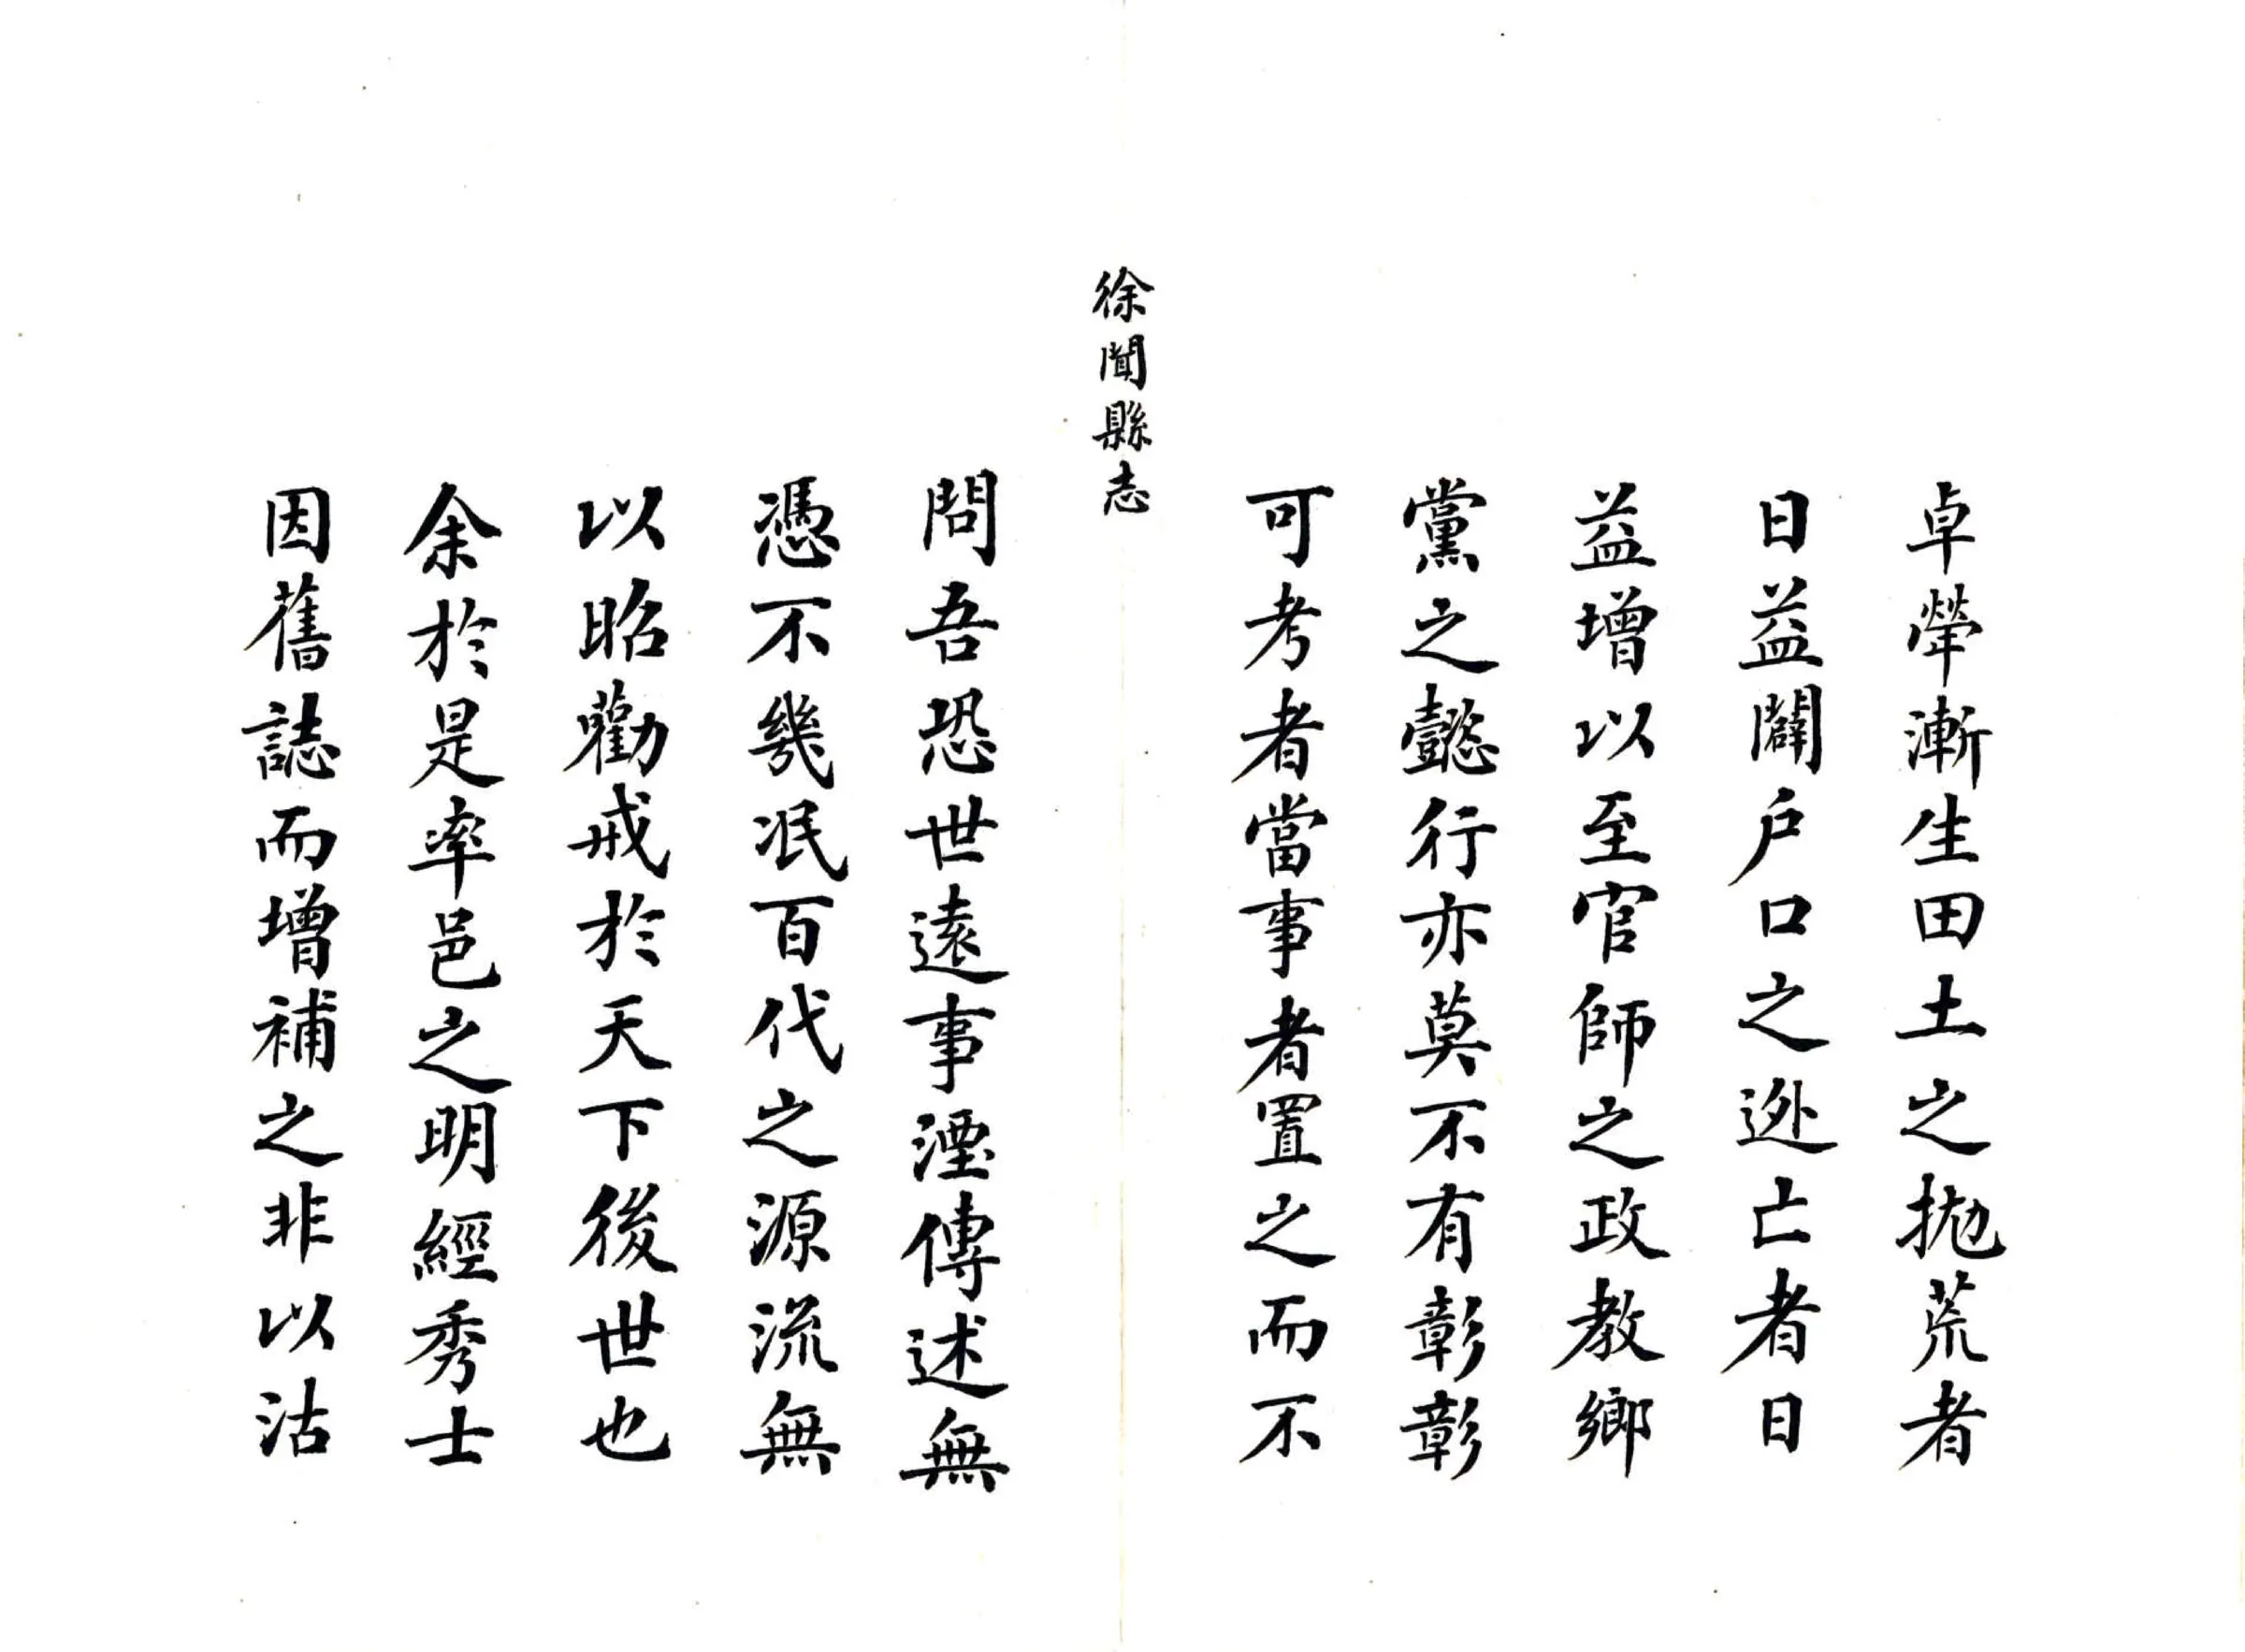 卓犖漸生田土之拋荒者
日益闢戶口之迯亡者日
益增以至官師之政教鄉
黨之懿行亦莫不有彰彰
可考者當事者置之而不
徐聞縣志
問吾恐世遠事湮傳述無
憑不幾泯百代之源流無
以昭勸戒於天下後世也
余於是率邑之明經秀士
因舊誌而增補之非以沽